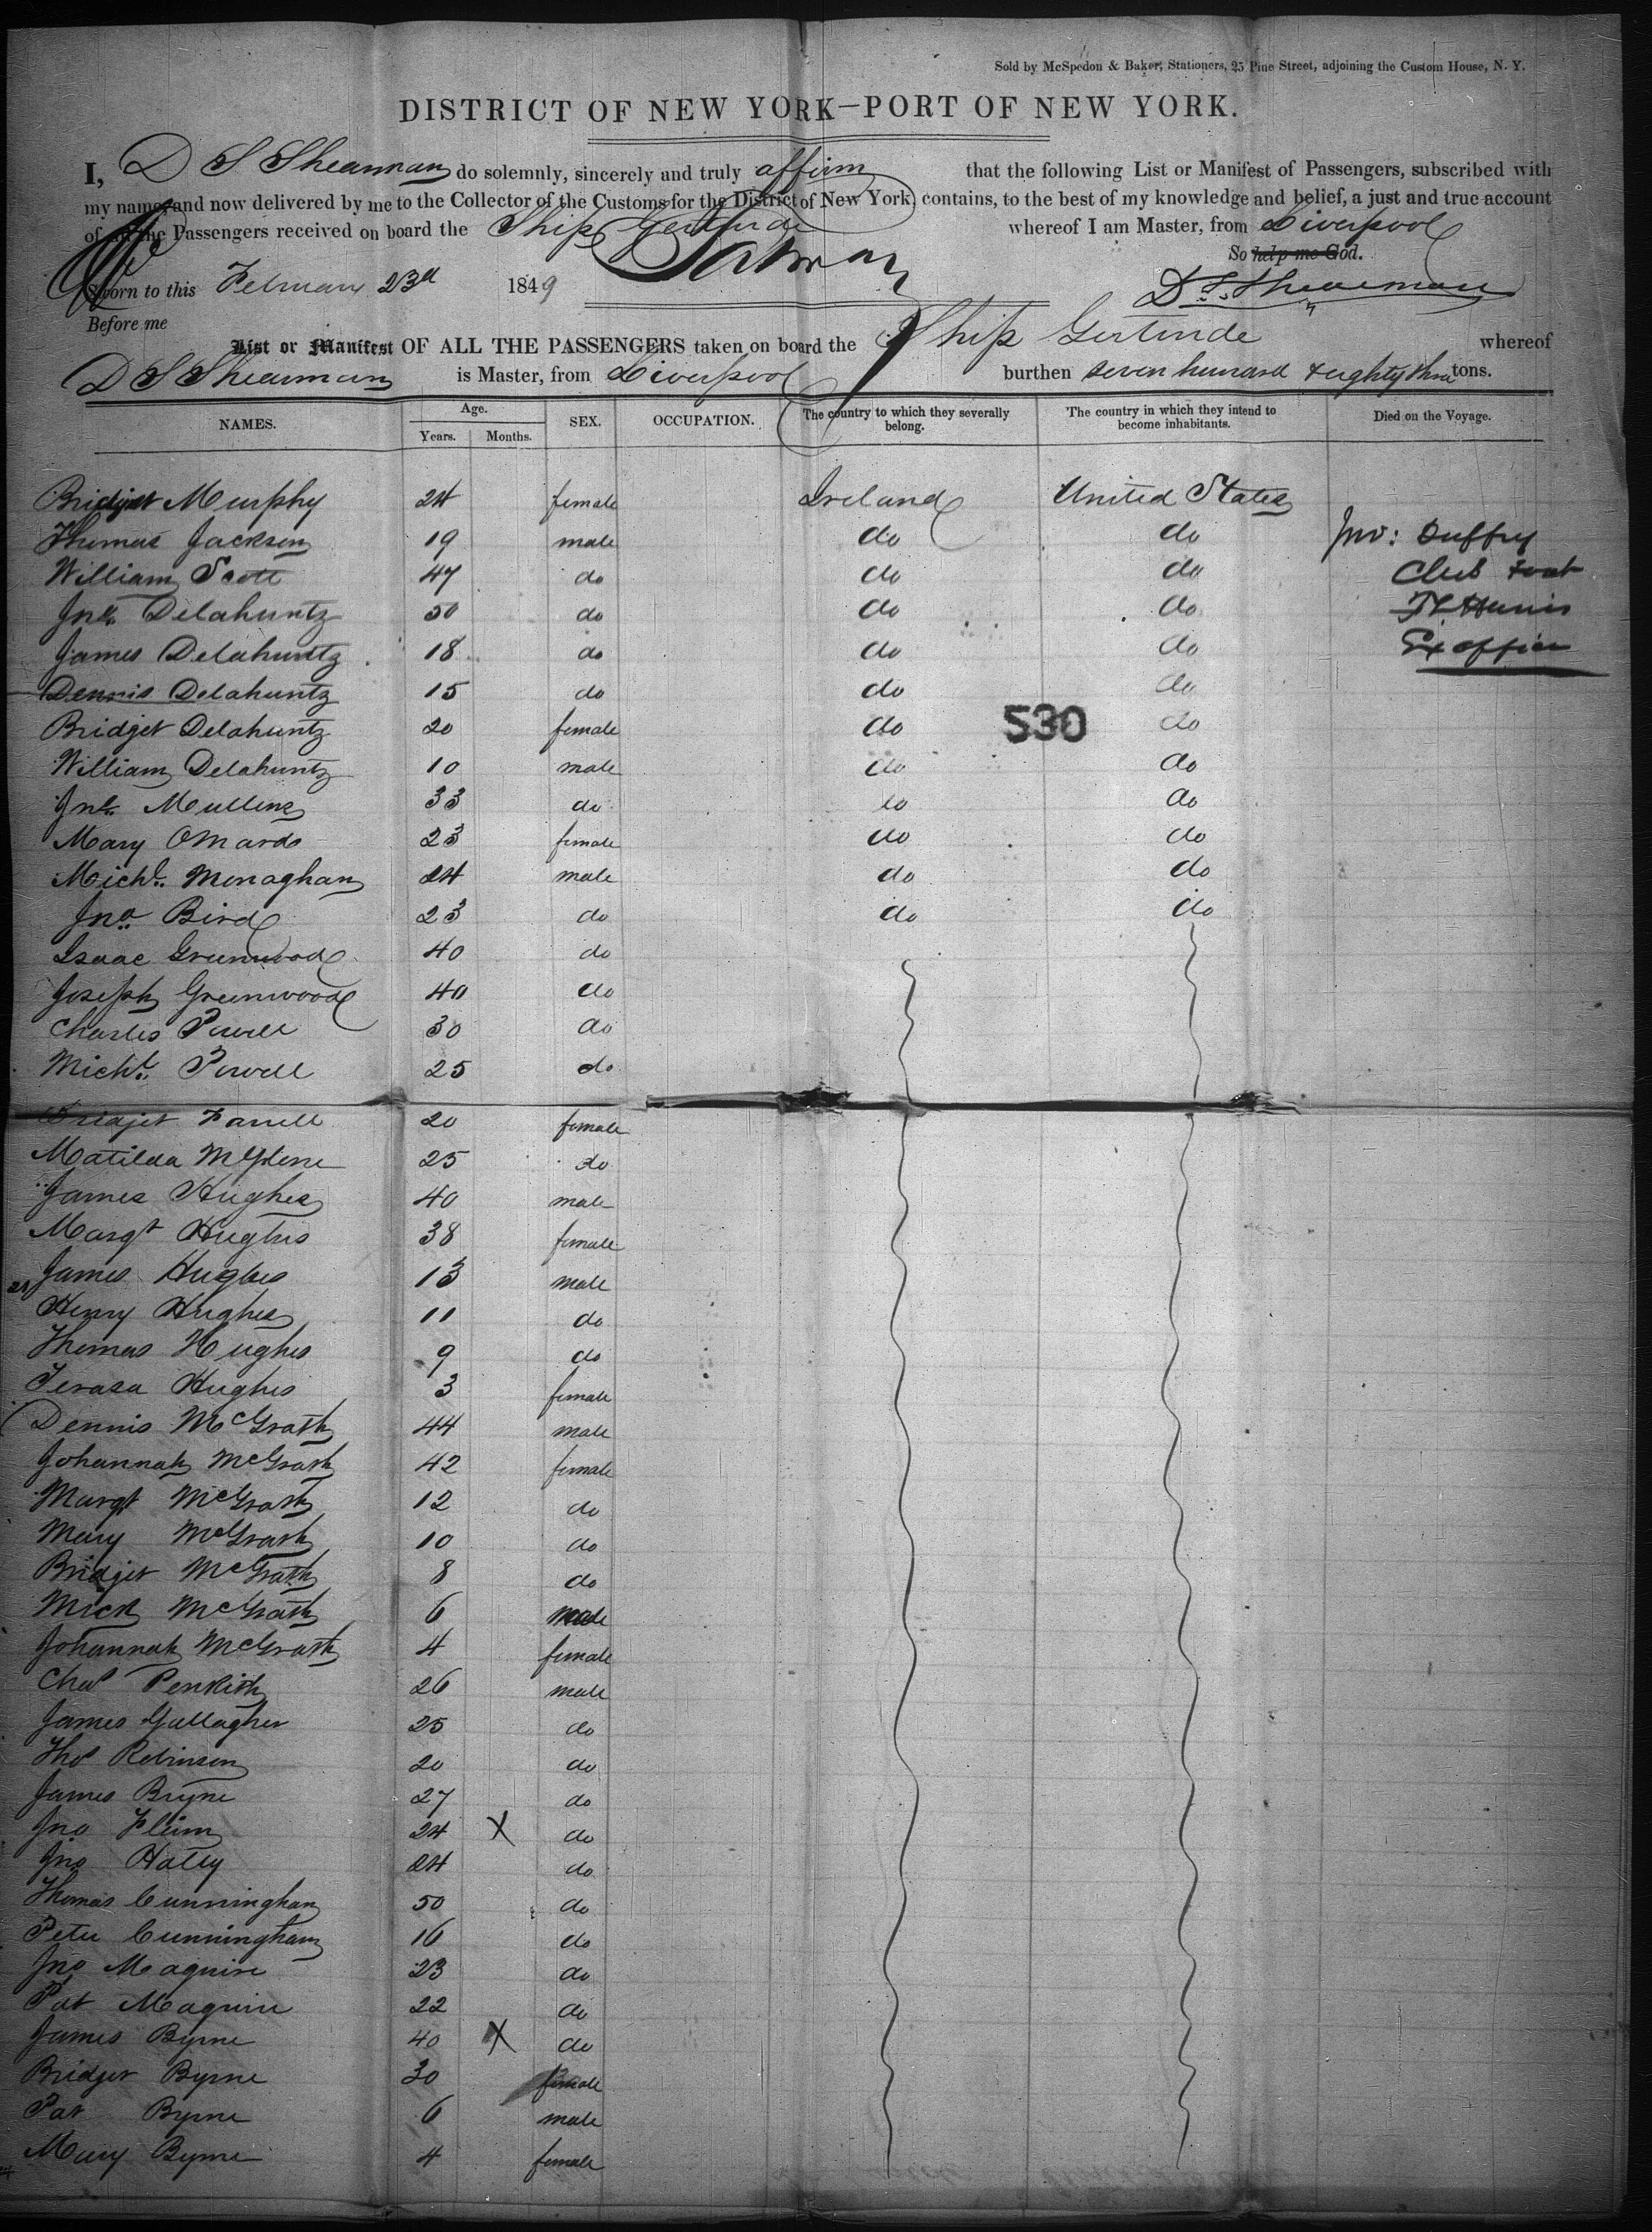 Sold by McSpedon & Baker, Stationers, 25 Pine Street, adjoining the Custom House, N. Y.
DISTRICT OF NEW YORK—PORT OF NEW YORK.
I, D S Shearman do solemnly, sincerely and truly affirm that the following List or Manifest of Passengers, subscribed with
my name, and now delivered by me to the Collector of the Customs for the District of New York, contains, to the best of my knowledge and belief, a just and true account
of all the Passengers received on board the Ship Gertrude whereof I am Master, from Liverpool
So help me God.
Sworn to this February 23d 1849 D S Shearman
Before me
List or Manifest OF ALL THE PASSENGERS taken on board the Ship Gertrude whereof
D S Shearman is Master, from Liverpool burthen seven hundred & eighty three tons.
NAMES. Age. Years. Months. SEX. OCCUPATION. The country to which they severally belong. The country in which they intend to become inhabitants. Died on the Voyage.
Bridget Murphy 24 female Ireland United States
Thomas Jackson 19 male do do Jno: Duffry
William Scott 47 do do do Club foot
Jno. Delahuntz 50 do do do
James Delahuntz 18 do do do Ex officer
Dennis Delahuntz 15 do do do
Bridget Delahuntz 20 female do do
530
William Delahuntz 10 male do do
Jno. Mullens 33 do do do
Mary 23 female do do
Michl. Monaghan 24 male do do
Jno. Bird 23 do do do
Isaac Greenwood 40 do
Joseph Greenwood 40 do
Charles Powell 30 do
Michl. Powell 25 do
Bridget Farrell 20 female
Matilda 25 do
James Hughes 40 male
Margt Hughes 38 female
James Hughes 13 male
Henry Hughes 11 do
Thomas Hughes 9 do
Terasa Hughes 3 female
Dennis McGrath 44 male
Johannah McGrath 42 female
Margt McGrath 12 do
Mary McGrath 10 do
Bridget McGrath 8 do
Mick McGrath 6 male
Johannah McGrath 4 female
Chas Penkith 26 male
James Gallagher 25 do
Thos Robinson 20 do
James Bryne 27 do
Jno 24 X do
Jno Hatty 24 do
Thomas Cunningham 50 do
Peter Cunningham 16 do
Jno Maguire 23 do
Pat Maguire 22 do
James Byrne 40 X do
Bridget Byrne 30 female
Pat Byrne 6 male
Mary Byrne 4 female